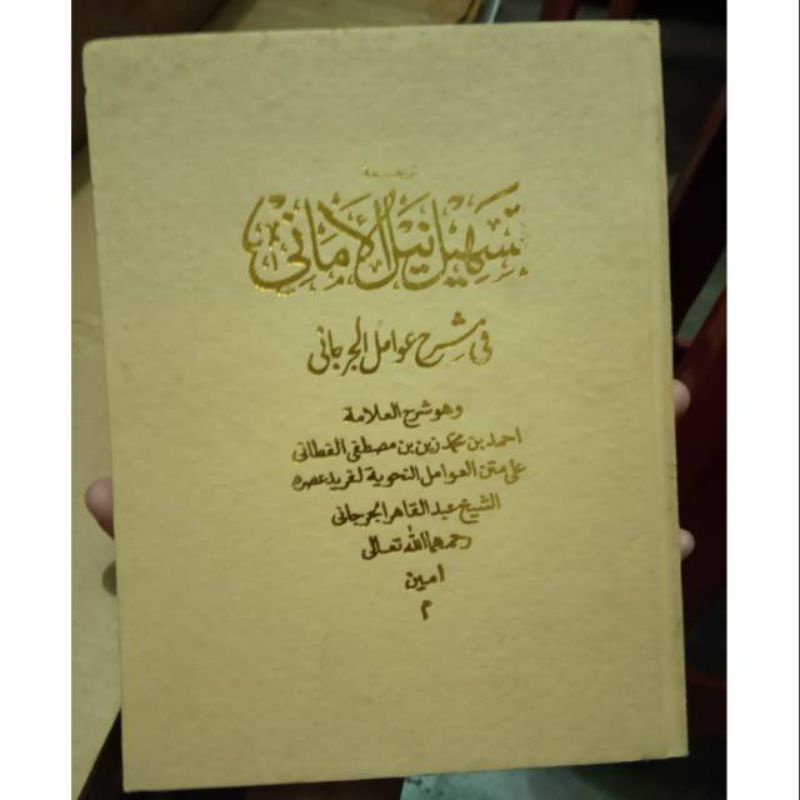 ترجمة
تسهيل نيل الأماني
في شرح عوامل الجرجاني
وهو شرح العلامة
احمد بن محمد زين بن مصطفى الفطاني
على متن العوامل النحوية لفريد عصره
الشيخ عبد القاهر الجرجاني
رحمهما الله تعالى
امين
م